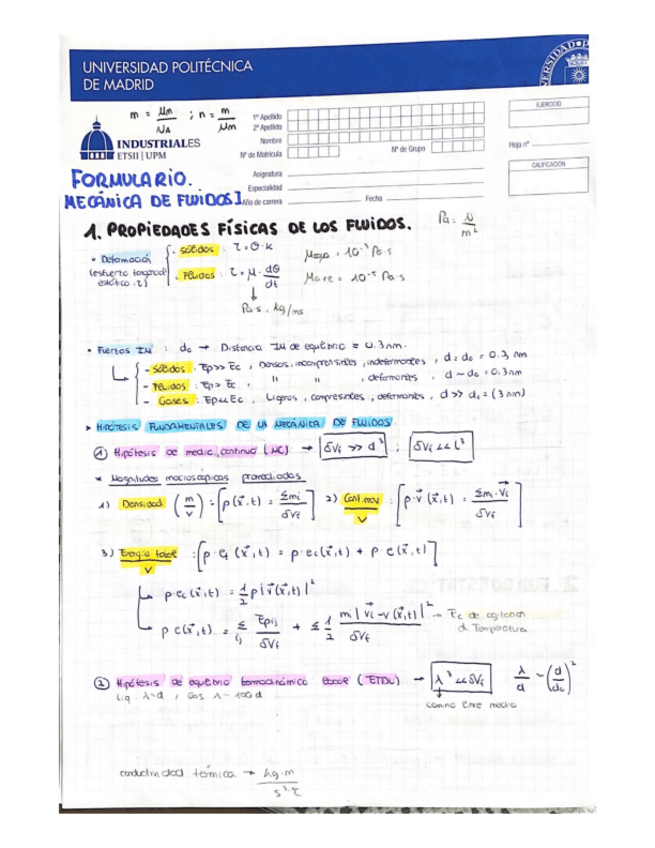 UNIVERSIDAD POLITÉCNICA
DE MADRID
m = μm/NA ; n = m/μm
INDUSTRIALES
ETSII | UPM
1º Apellido
2º Apellido
Nombre
Nº de Matrícula
Nº de Grupo
EJERCICIO
Hoja nº
CALIFICACIÓN
Asignatura
Especialidad
Año de carrera
Fecha
FORMULARIO.
MECÁNICA DE FLUIDOS I
1. PROPIEDADES FÍSICAS DE LOS FLUIDOS.
Pa: N/m²
• Deformación
(esfuerzo tangencial
- Sólidos : τ = θ·k
- Fluidos : τ = μ · dθ/dt
Pa·s, kg/ms
μagua = 10⁻³ Pa·s
μaire = 10⁻⁵ Pa·s
• Fuerzas IM : do → Distancia IM de equilibrio = 0.3nm.
- Sólidos : Ep>>Ec , Densos, incompresibles, indeformables , d = do = 0.3 nm
- Fluidos : Ep> Ec , " " , deformables , d ~ do = 0.3nm
- Gases : Ep<<Ec , Ligeros, compresibles, deformables , d >> do = (3nm)
➤ HIPÓTESIS FUNDAMENTALES DE LA MECÁNICA DE FLUIDOS.
① Hipótesis de medio continuo (MC) → δVf >> d³ ; δVf << L³
* Magnitudes macroscópicas promediadas
1) Densidad (m/v) : [ρ(x⃗,t) = Σmi/δVf]
2) Cant.mov/V : [ρ·v⃗(x⃗,t) = Σmi·v⃗i/δVf]
3) Energía total/V : [ρ·et(x⃗,t) = ρ·ec(x⃗,t) + ρ e(x⃗,t)]
ρ·ec(x⃗,t) = 1/2 ρ|v⃗(x⃗,t)|²
ρ e(x⃗,t) = Σij Epij/δVf + Σ 1/2 mi|v⃗i-v(x⃗,t)|²/δVf → Ec de agitación
Temperatura
② Hipótesis de equilibrio termodinámico local (ETDL) → λ³ << δVf
λ/d ~ (d/do)²
Liq. λ~d , Gas λ~100d
camino libre medio
conductividad térmica → kg·m/s³·